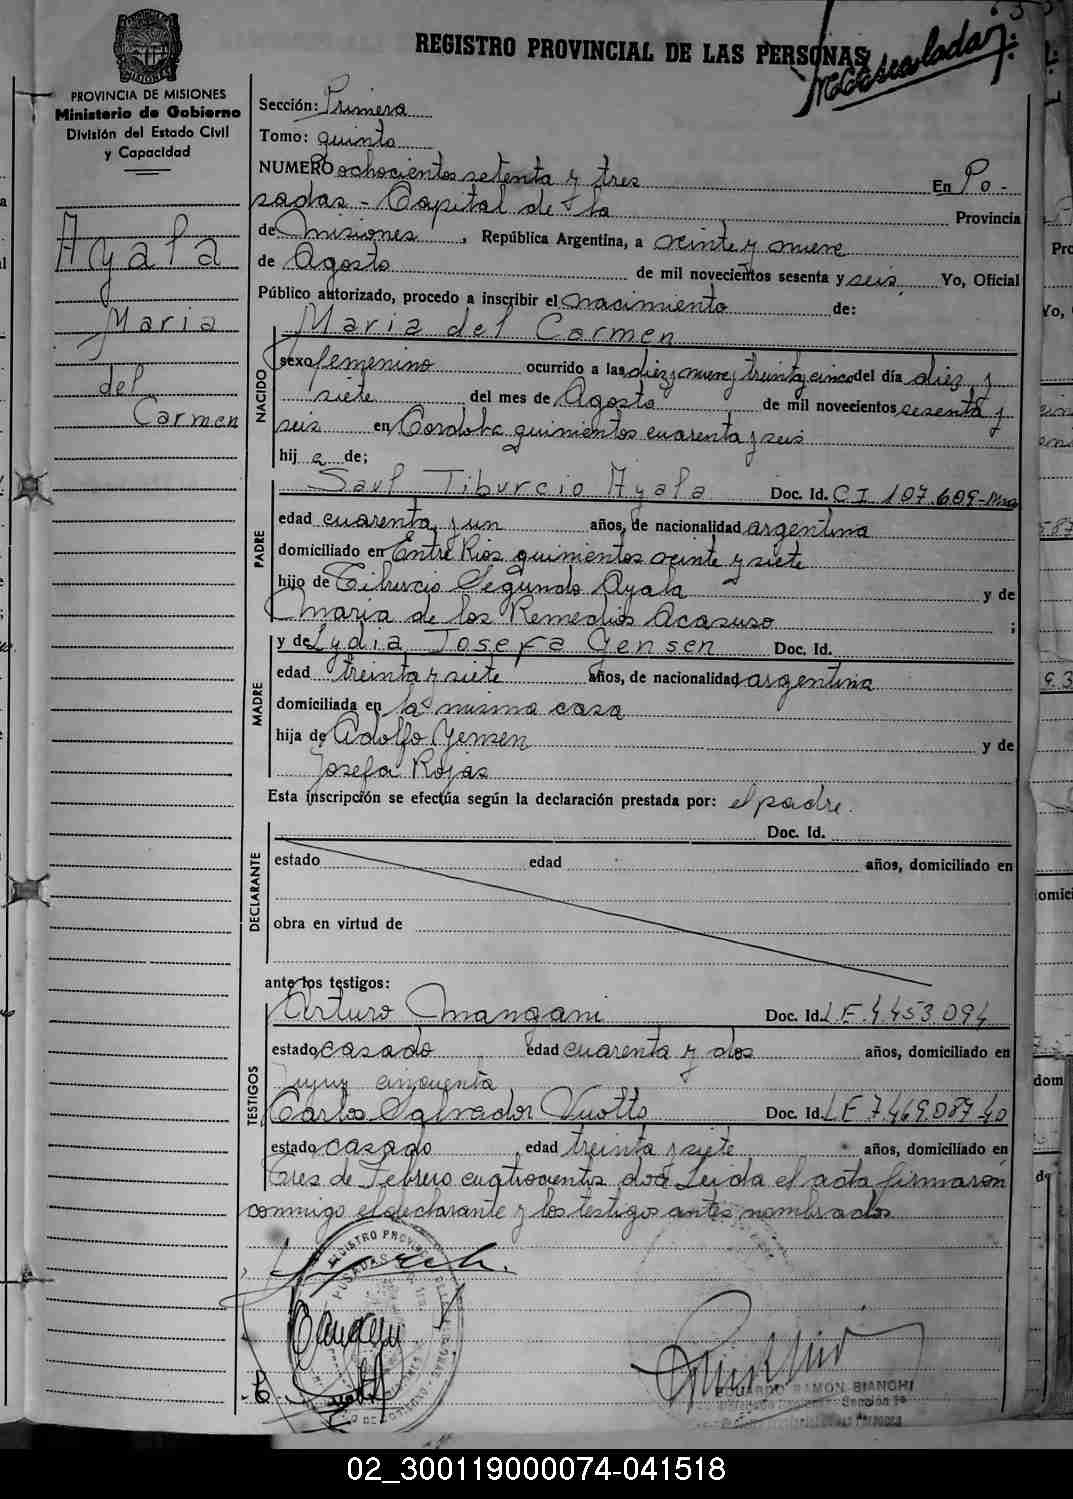 REGISTRO PROVINCIAL DE LAS PERSONAS
PROVINCIA DE MISIONES
Ministerio de Gobierno
División del Estado Civil
y Capacidad
Ayala
Maria
del
Carmen
Sección: Primera
Tomo: quinto
NUMERO ochocientos setenta y tres En Po-
sadas - Capital de la Provincia
de Misiones, República Argentina, a veinte y nueve
de Agosto de mil novecientos sesenta y seis. Yo, Oficial
Público autorizado, procedo a inscribir el nacimiento de:
Maria del Carmen
NACIDO
sexo femenino ocurrido a las diez y nueve y treinta y cinco del día diez y
siete del mes de Agosto de mil novecientos sesenta y
seis en Cordoba quinientos cuarenta y seis
hij a de;
PADRE
Saul Tiburcio Ayala Doc. Id. C I 107.609-Mnes
edad cuarenta y un años, de nacionalidad argentina
domiciliado en Entre Rios quinientos veinte y siete
hijo de Tiburcio Segundo Ayala y de
Maria de los Remedios Acasuso ;
MADRE
y de Lydia Josefa Gensen Doc. Id.
edad treinta y siete años, de nacionalidad argentina
domiciliada en la misma casa
hija de Adolfo Yensen y de
Josefa Rojas
Esta inscripción se efectúa según la declaración prestada por: el padre.
DECLARANTE
Doc. Id.
estado edad años, domiciliado en
obra en virtud de
ante los testigos:
TESTIGOS
Arturo Mangani Doc. Id. L E 4.453.094
estado casado edad cuarenta y dos años, domiciliado en
Jujuy cincuenta
Carlos Salvador Vuotto Doc. Id. L E 7.469.087-40
estado casado edad treinta y siete años, domiciliado en
Tres de Febrero cuatrocientos doce Leida el acta firmaron
conmigo el declarante y los testigos antes nombrados
EDUARDO RAMON BIANCHI
02_300119000074-041518